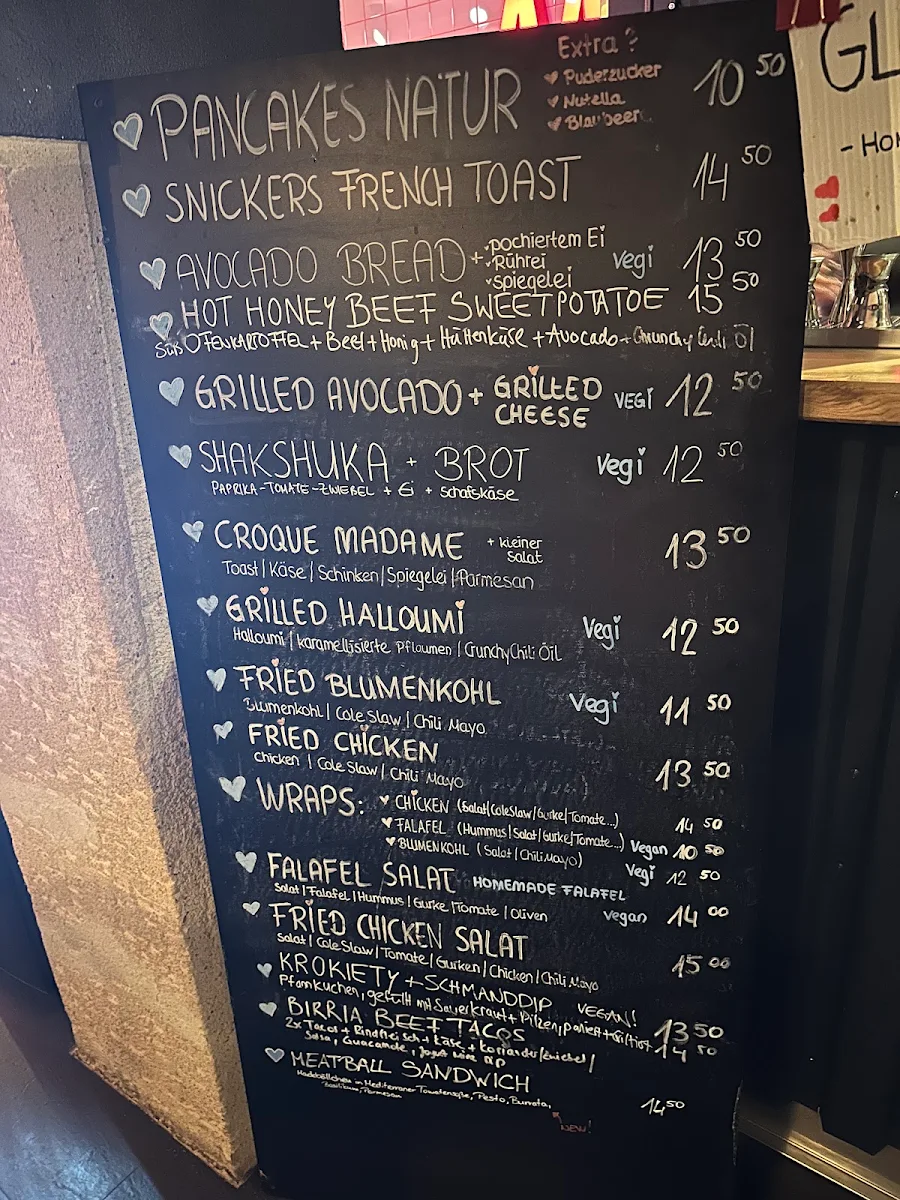 Extra?
Puderzucker
Nutella
Blaubeer
PANCAKES NATUR 10 50
SNICKERS FRENCH TOAST 14 50
AVOCADO BREAD + pochiertem Ei
Rührei
spiegelei
Vegi 13 50
HOT HONEY BEEF SWEETPOTATOE 15 50
Süß OFENKARTOFFEL + Beef + Honig + Hüttenkäse + Avocado + Crunchy Chili Öl
GRILLED AVOCADO + GRILLED CHEESE VEGI 12 50
SHAKSHUKA + BROT Vegi 12 50
PAPRIKA-TOMATE-ZWIEBEL + Ei + Schafskäse
CROQUE MADAME + kleiner Salat 13 50
Toast | Käse | Schinken | Spiegelei | Parmesan
GRILLED HALLOUMI Vegi 12 50
Halloumi | karamellisierte Pflaumen | CrunchyChili ÖiL
FRIED BLUMENKOHL Vegi 11 50
Blumenkohl | Cole Slaw | Chili Mayo
FRIED CHICKEN 13 50
Chicken | Cole Slaw | Chili Mayo
WRAPS: CHICKEN (Salat|ColeSlaw|Gurke|Tomate...) 14 50
FALAFEL (Hummus|Salat|Gurke|Tomate...) Vegan 10 50
BLUMENKOHL (Salat|ChiliMayo) Vegi 12 50
FALAFEL SALAT HOMEMADE FALAFEL
Salat | Falafel | Hummus | Gurke | Tomate | Oliven vegan 14 00
FRIED CHICKEN SALAT 15 00
Salat | Cole Slaw | Tomate | Gurken | Chicken | Chili Mayo
KROKIETY + SCHMANDDIP VEGAN!
Pfannkuchen, gefüllt mit Sauerkraut + Pilzen, paniert + frittiert 13 50
BIRRIA BEEF TACOS 14 50
2x Tacos + Rindfleisch + Käse + Koriander | Zwiebel |
Salsa, Guacamole,
MEATBALL SANDWICH
Hackbällchen in Mediterraner Tomatensoße, Pesto, Burrata, 14 50
Basilikum, Parmesan
NEW!
GL
- HO